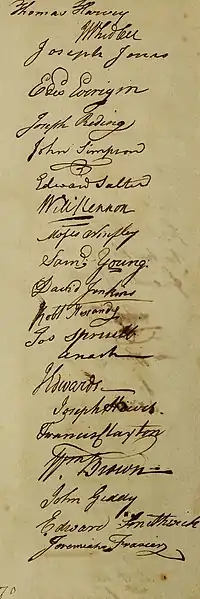 Thomas Harvey
Whidbee
Joseph Jones
Edwd Everigin
Joseph Reding
John Simpson
Edward Salter
Will Lennon
Moses
Saml Young
David Jenkins
Robt
Jos Spruill
A Nash
J Edwards
Joseph Hewes
Francis Clayton
Wm Brown
John Geddy
Edward Smithwick
Jeremiah Frasier
70